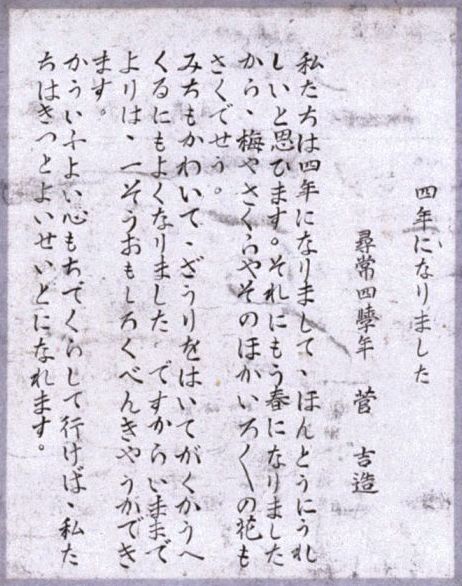 四年になりました
尋常四學年　菅　吉造
私たちは四年になりまして、ほんとうにうれ
しいと思ひます。それにもう春になりました
から、梅やさくらやそのほかいろ〱の花も
さくでせう。
みちもかわいて、ざうりをはいてがくかうへ
くるにもよくなりました　ですからいままで
よりは、一そうおもしろくべんきやうができ
ます。
かういふよい心もちでくらして行けば、私た
ちはきつとよいせいとになれます。